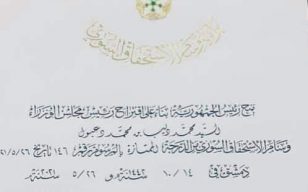 وسام الاستحقاق السوري
يمنح رئيس الجمهورية بناء على اقتراح رئيس مجلس الوزراء
السيد محمد ديب بن محمد دعبول
وسام الاستحقاق السوري من الدرجة الممتازة بالمرسوم رقم ١٤٦ تاريخ ٢١/٥/٢٦
دمشق في ١٠/١٤ ١٤٤٢ هـ و ٥/٢٦